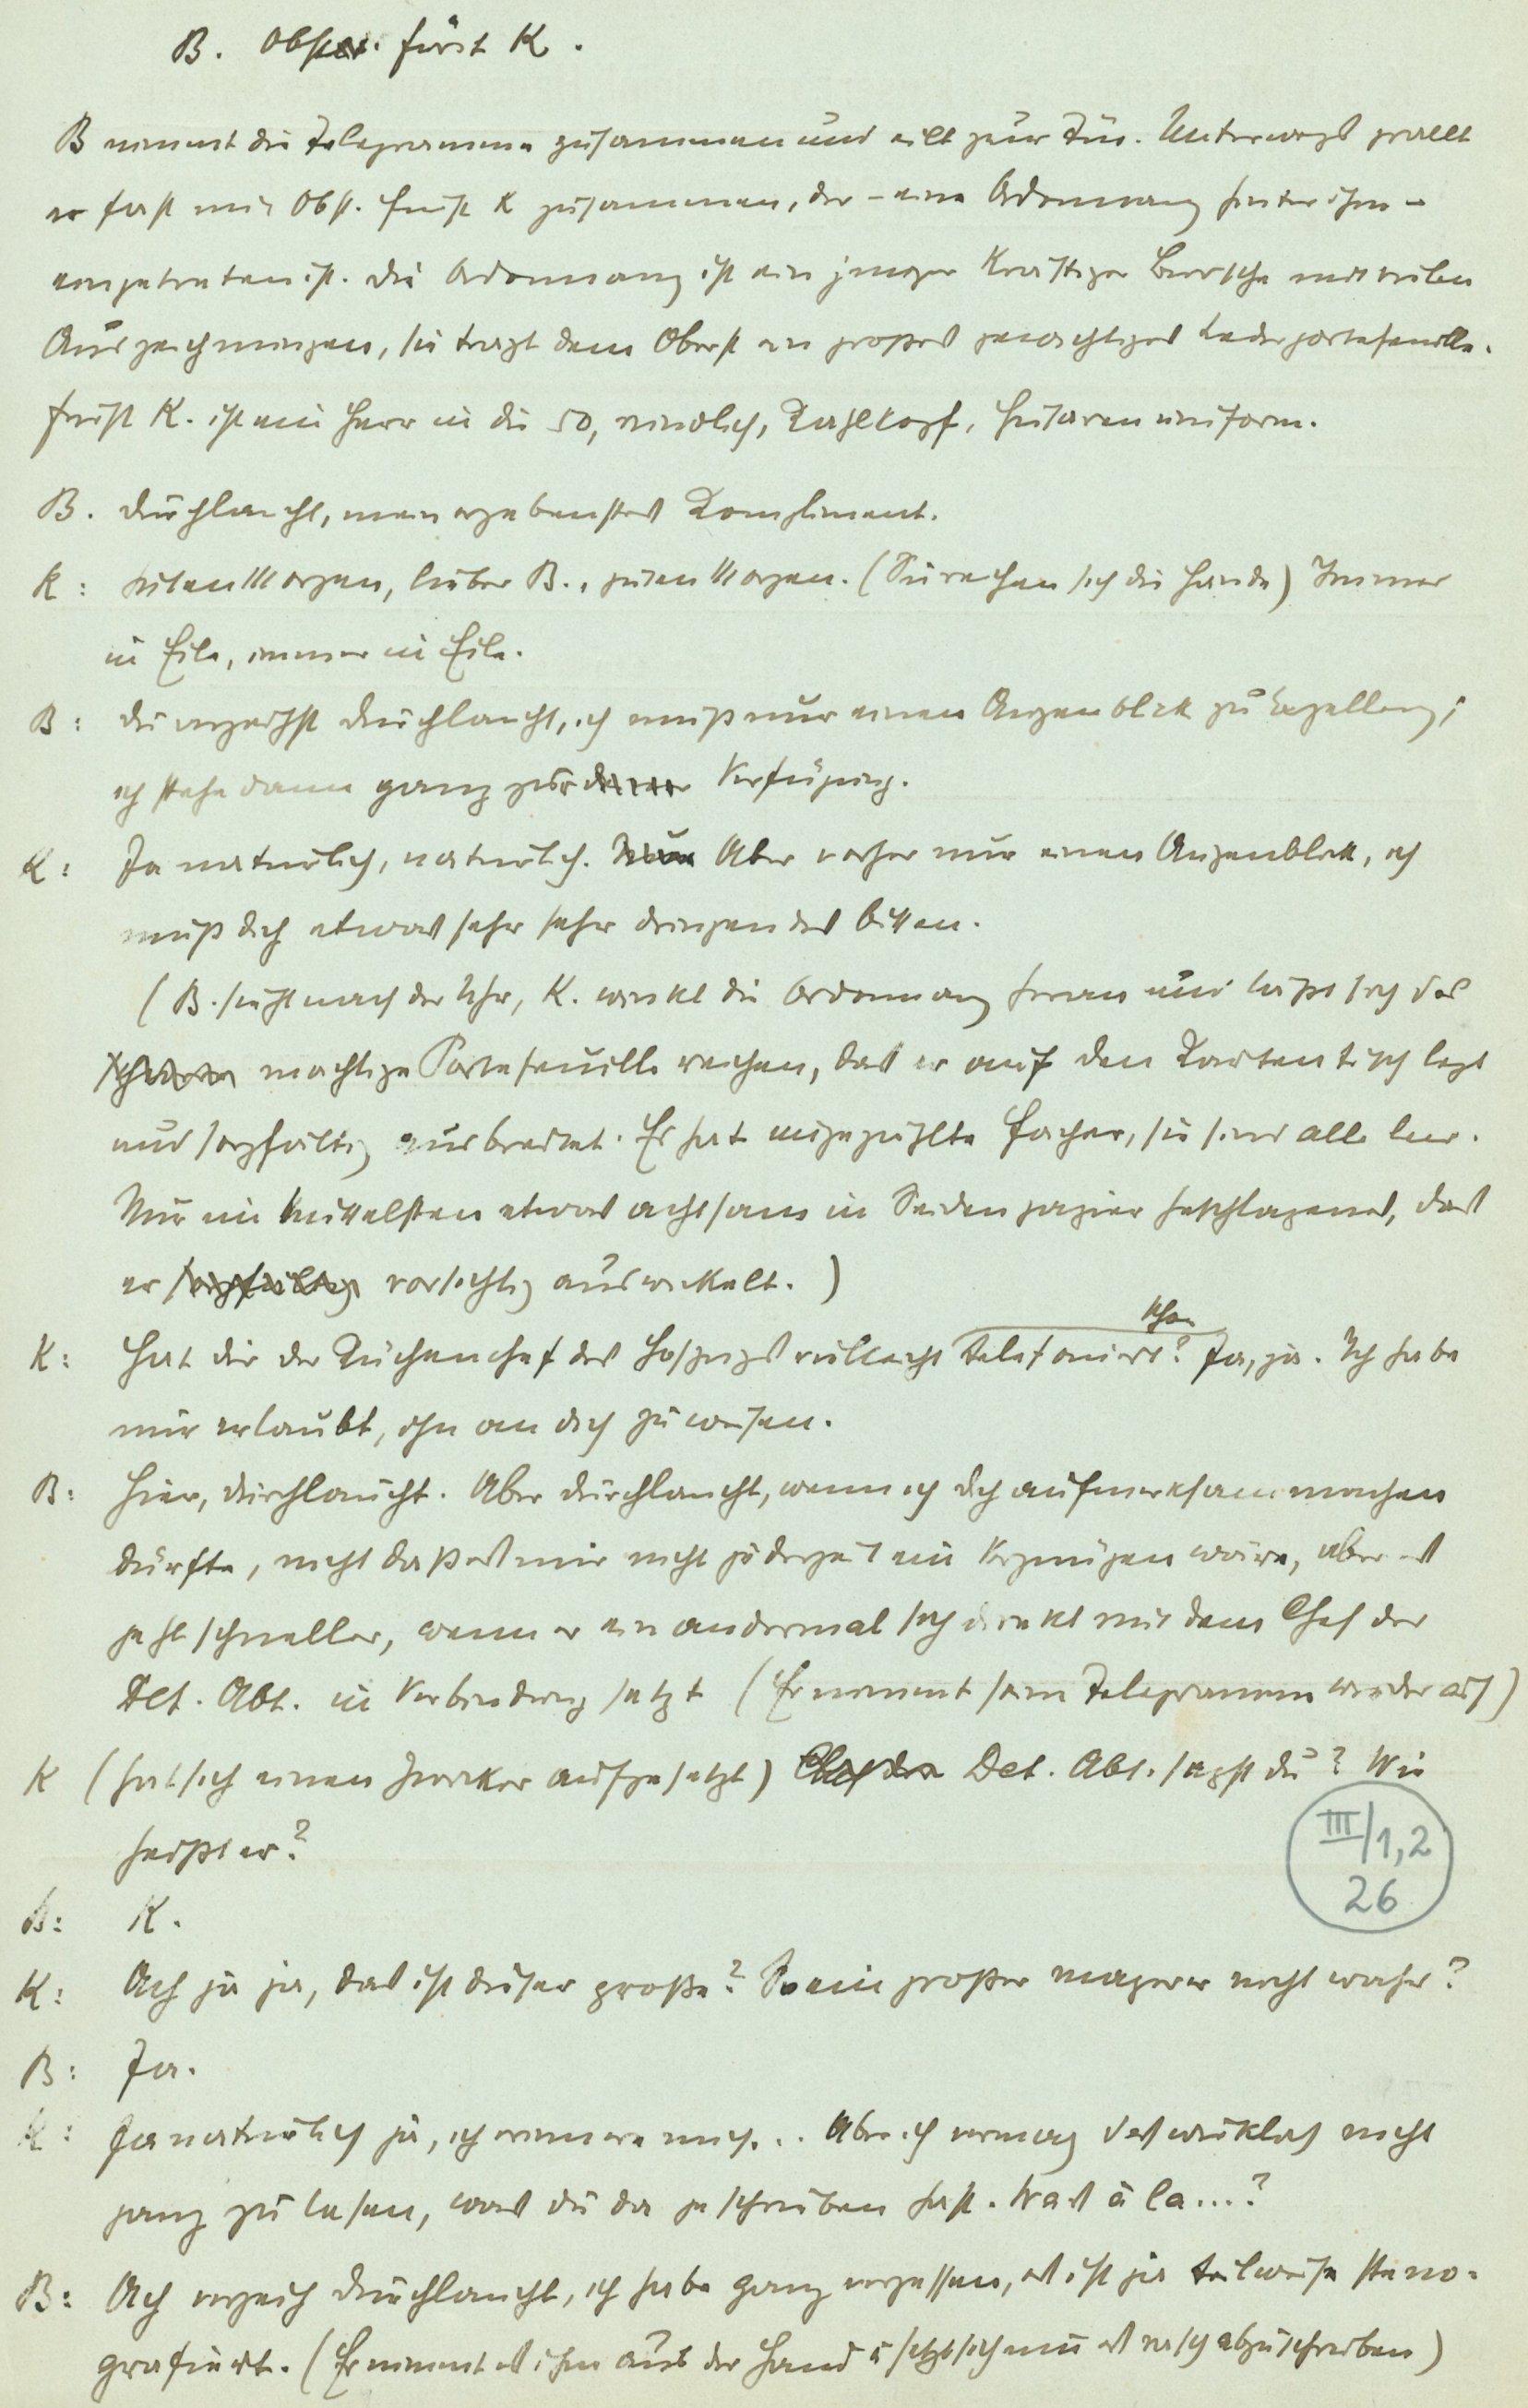 B. Obst. Fürst K.
B nimmt die Telegramme zusammen und eilt zur Tür. Unterwegs prallt
er fast mit Obst. Fürst K zusammen, der – eine Ordonnanz hinter ihm –
eingetreten ist. Die Ordonnanz ist ein junger kräftiger Bursche mit vielen
Auszeichnungen, sie trägt dem Oberst ein großes gewichtiges Lederportefeuille.
Fürst K. ist ein Herr in die 50, rundlich, Kahlkopf, Husarenuniform.
B. Durchlaucht, mein ergebenstes Kompliment.
K: Guten Morgen, lieber B., guten Morgen. (Sie reichen sich die Hände) Immer
in Eile, immer in Eile.
B: Du verzeihst Durchlaucht, ich muß nur einen Augenblick zu Exzellenz;
ich stehe dann ganz zur deiner Verfügung.
K: Ja natürlich, natürlich. Aber vorher nur einen Augenblick, ich
muß dich etwas sehr sehr dringendes bitten.
(B. sieht nach der Uhr, K. winkt die Ordonnanz heran und läßt sich das
mächtige Portefeuille reichen, das er auf den Kartentisch legt
und sorgfältig ausbreitet. Es hat ungezählte Fächer, sie sind alle leer.
Nur im mittelsten etwas achtsam in Seidenpapier geschlagenes, das
er sorgfältig vorsichtig auswickelt.)
K: Hat dir der Küchenchef des Hospizes vielleicht schon telefoniert? Ja, ja. Ich habe
mir erlaubt, ihn an dich zu weisen.
B: Hier, Durchlaucht. Aber Durchlaucht, wenn ich dich aufmerksam machen
dürfte, nicht daß es mir nicht jederzeit ein Vergnügen wäre, aber es
geht schneller, wenn er ein andermal sich direkt mit dem Chef der
Det. Abt. in Verbindung setzt (Er nimmt seine Telegramme wieder auf)
K (hat sich einen Zwicker aufgesetzt) Chef der Det. Abt. sagst du? Wie
heißt er?
III/1,2
26
B: K.
K: Ach ja ja, das ist dieser große? So ein großer magerer nicht wahr?
B: Ja.
K: Ja natürlich ja, ich erinnere mich... Aber ich vermag das wirklich nicht
ganz zu lesen, was du da geschrieben hast. Was à la...?
B: Ach verzeih Durchlaucht, ich habe ganz vergessen, es ist ja teilweise steno-
grafiert. (Er nimmt es ihm aus der Hand u setzt sich nun es rasch abzuschreiben)